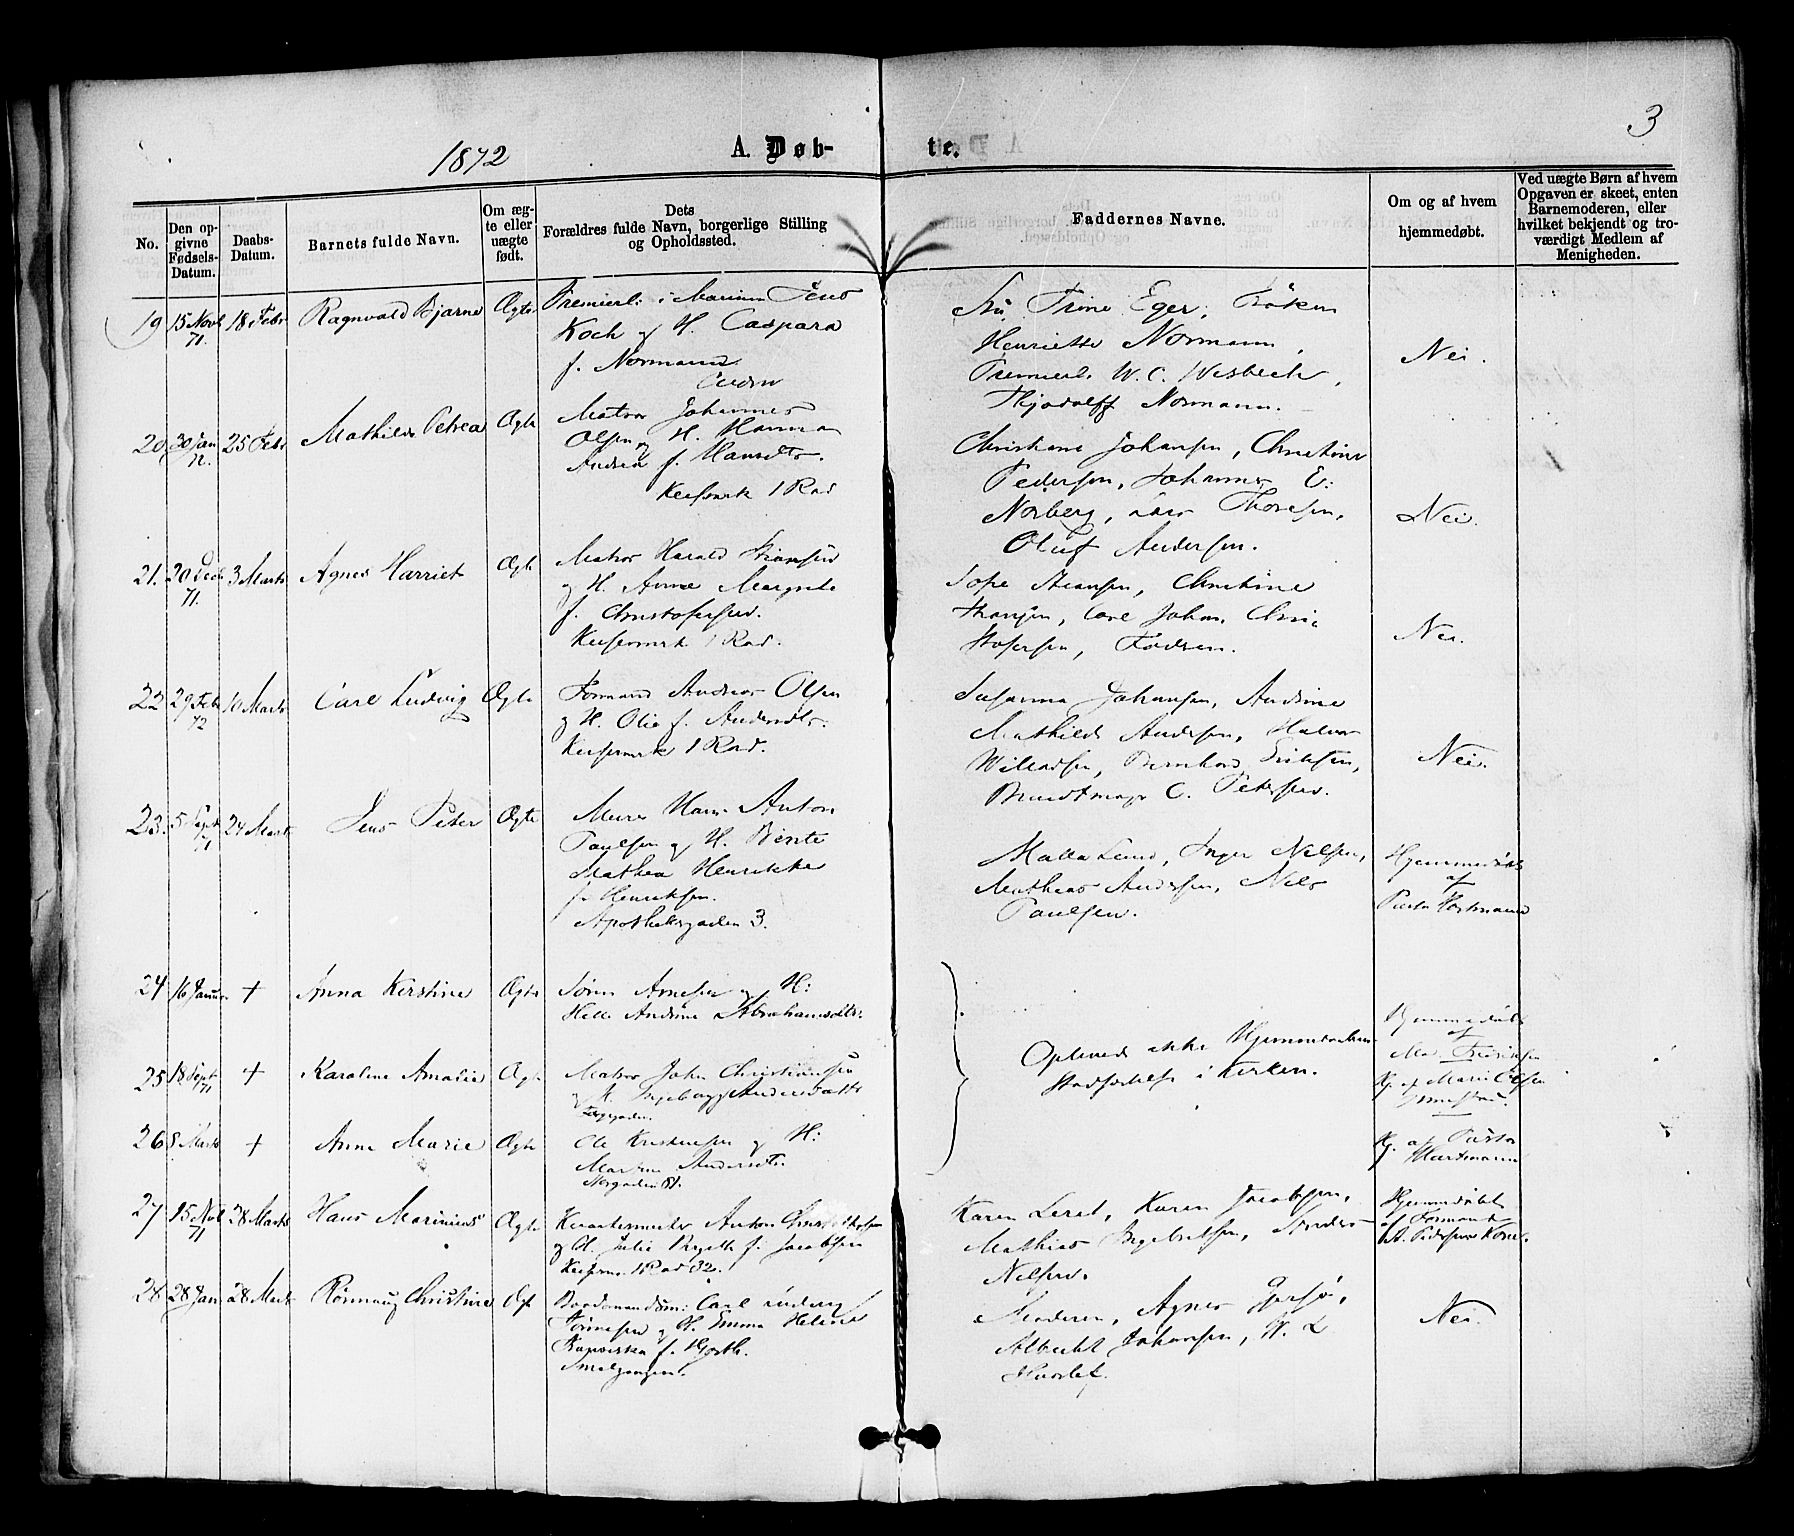 3
1872
A. Døb-
te.
No.
Den op-
givne
Fødsels-
Datum.
Daabs-
Datum.
Barnets fulde Navn.
Om æg-
te eller
uægte
født.
Dets
Forældres fulde Navn, borgerlige Stilling
og Opholdssted.
Faddernes Navne.
Om og af hvem
hjemmedøbt.
Ved uægte Børn af hvem
Opgaven er skeet, enten
Barnemoderen, eller
hvilket bekjendt og tro-
værdigt Medlem af
Menigheden.
19
15 Novb
71.
18 Febr
Ragnvald Bjarne
Ægte
Premierl: i Marinen Jens
Koch og H. Caspara
f. Normann
Fru Trine Eger, Frøken
Henriette Normann,
Premierl. W. C. Wesbech,
Thjodolff Normann.
Nei.
20
30 Jan
72.
25 Febr
Mathilde Petrea
Ægte
Matros Johannes
Olsen og H. Hanna
Andrea f. Hansdtr.
1 Rad
Christiane Johansen, Christine
Pedersen, Johannes E.
Norberg, Lars Thoresen,
Oluf Andersen.
Nei.
21.
20 Dec
71.
3 Marts
Agnes Harriet
Ægte
Matros Harald
og H. Anne Margrete
f. Christofersen.
1 Rad.
Christine
Carl Johan Chri-
stofersen,
Nei.
22
29 Feb
72
10 Marts
Carl Ludvig
Ægte
Formand Andreas Olsen
og H. Olia f. Andersdtr.
1 Rad.
Susanna Johansen, Andrine
Mathilde Andersen, Halvor
Willadsen, Bernhard Eriksen,
C. Petersen.
Nei.
23.
5 Sept
71
24 Marts
Jens Peter
Ægte
Murer Hans Anton
Paulsen og H. Bente
Mathea Henrikke
f. Henriksen.
Apothekergaden 3.
Malla Lund, Inger Nilsen,
Mathias Andersen, Nils
Paulsen.
Hjemmedøbt
af
Pastor Hartmann
24
16 Januar
+
Anna Kirstine
Ægte
Søren Arnesen og H:
Helle Andrine Abrahamsdtr:
Oplevede ikke Hjemmedaabens
Stadfæstelse i Kirken.
Hjemmedøbt
af
Md. Fredriksen
25
18 Sept
71
+
Karoline Amalie
Ægte
Matros John Christiansen
og H. Ingeborg Andersdatter
Hj. af Marie Olsen
26
8 Marts
+
Anne Marie
Ægte
Ole Kristensen og H:
Martine Andersdtr.
Hj. af Pastor
Hartmann
27
15 Nov
71
28 Marts
Hans Marinius
Ægte
Kvartermester Anton
og H. Julie Birgitte f. Jacobsen
1 Rad 32.
Karen Karen Jacobsen,
Mathias Ingebretsen,
Nilsen.
Hjemmedøbt
af Formand
A. Pedersens Kone.
28
28 Jan
28 Marts
Rønnaug Christine
Ægte
Baadsmandsm: Carl Ludvig
Tønnesen og H. Emma Helene
f. Hjorth.
Smalgangen.
Moderen, Agnes Gjersø,
Albrecht Johansen, W. L.
Nei.